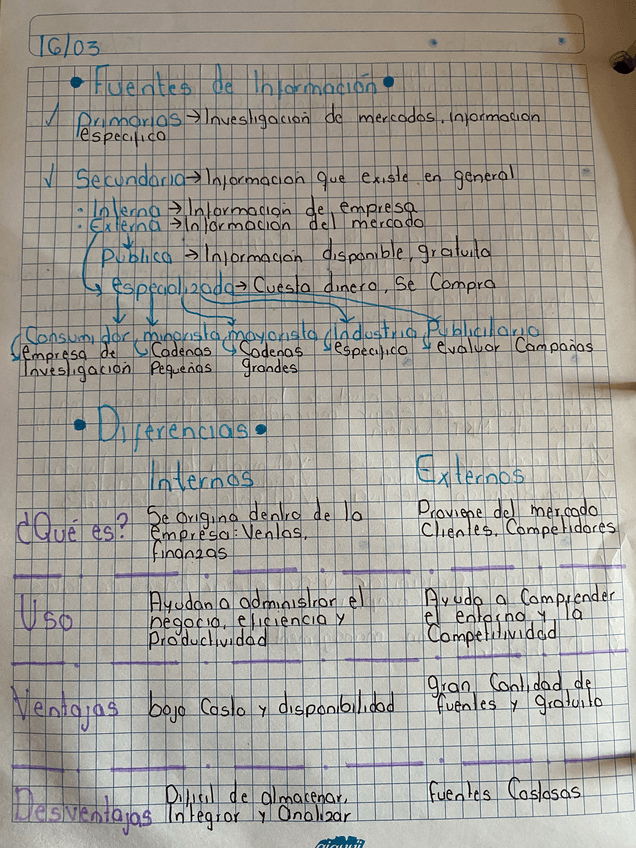 16/03
• Fuentes de Información •
✓ Primarias → Investigación de mercados, informacion
especifico
✓ Secundaria → Informacion que existe en general
· Interna → Información de empresa
· Externa → Información del mercado
Publica → Información disponible, gratuita
especializada → Cuesta dinero, Se Compra
Consumidor, minorista, mayorista, Industria, Publicitario
empresa de Cadenas Cadenas especifico evaluar Campañas
Investigación Pequeñas grandes
• Diferencias •
Internos Externos
¿Qué es? Se origina dentro de la Proviene del mercado
empresa: Ventas, Clientes, Competidores
finanzas
Uso Ayudan a administrar el Ayuda a Comprender
negocio, eficiencia y el entorno y la
Productividad Competitividad
Ventajas bajo Costo y disponibilidad gran Cantidad de
fuentes y gratuito
Desventajas Dificil de almacenar, fuentes Costosas
Integrar y analizar